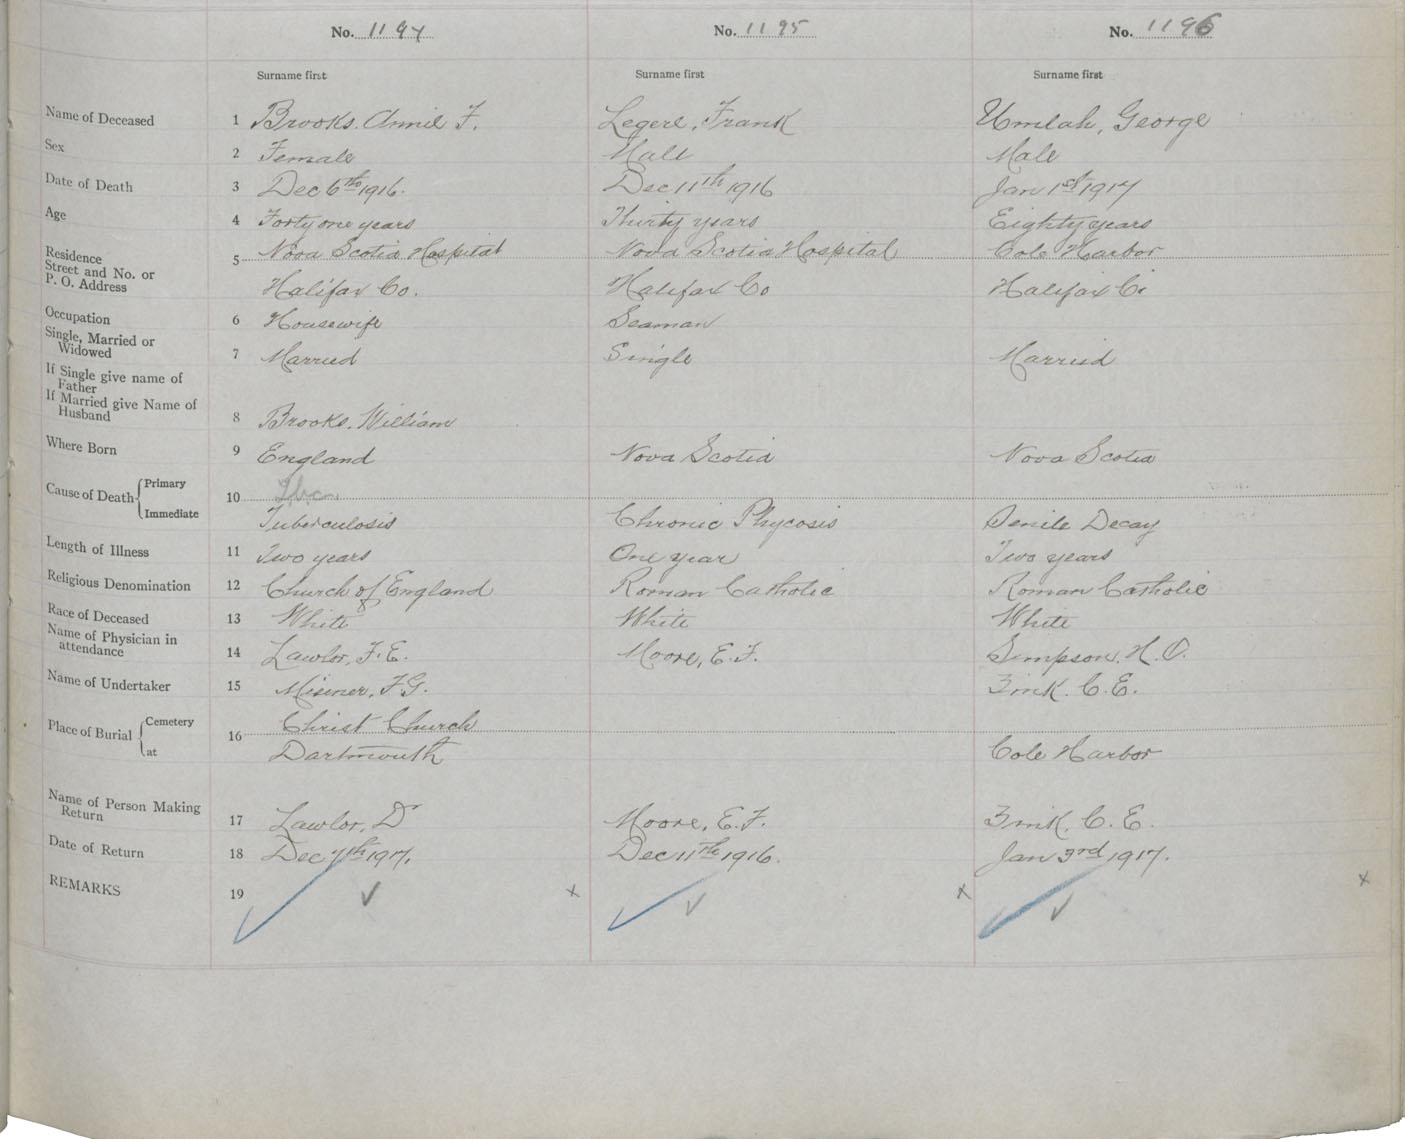 No. 1194 No. 1195 No. 1196
Surname first Surname first Surname first
Name of Deceased 1 Brooks, Annie F. Legere, Frank Umlah, George
Sex 2 Female Male Male
Date of Death 3 Dec 6th 1916. Dec 11th 1916 Jan 1st 1917
Age 4 Forty one years Thirty years Eighty years
Residence 5 Nova Scotia Hospital Nova Scotia Hospital Cole Harbor
Street and No. or
P. O. Address Halifax Co. Halifax Co Halifax Co
Occupation 6 Housewife Seaman
Single, Married or
Widowed 7 Married Single Married
If Single give name of
Father
If Married give Name of
Husband 8 Brooks, William
Where Born 9 England Nova Scotia Nova Scotia
Cause of Death Primary 10 Tbc
Immediate Tuberculosis Chronic Phycosis Senile Decay
Length of Illness 11 Two years One year Two years
Religious Denomination 12 Church of England Roman Catholic Roman Catholic
Race of Deceased 13 White White White
Name of Physician in
attendance 14 Lawlor, F. E. Moore, E. F. Simpson, H. O.
Name of Undertaker 15 Misener, F G. Zink. C. E.
Place of Burial Cemetery 16 Christ Church
at Dartmouth Cole Harbor
Name of Person Making
Return 17 Lawlor, Dr Moore, E. F. Zink, C. E.
Date of Return 18 Dec 7th 1917. Dec 11th 1916. Jan 3rd 1917.
REMARKS 19 ✓ x ✓ x ✓ x